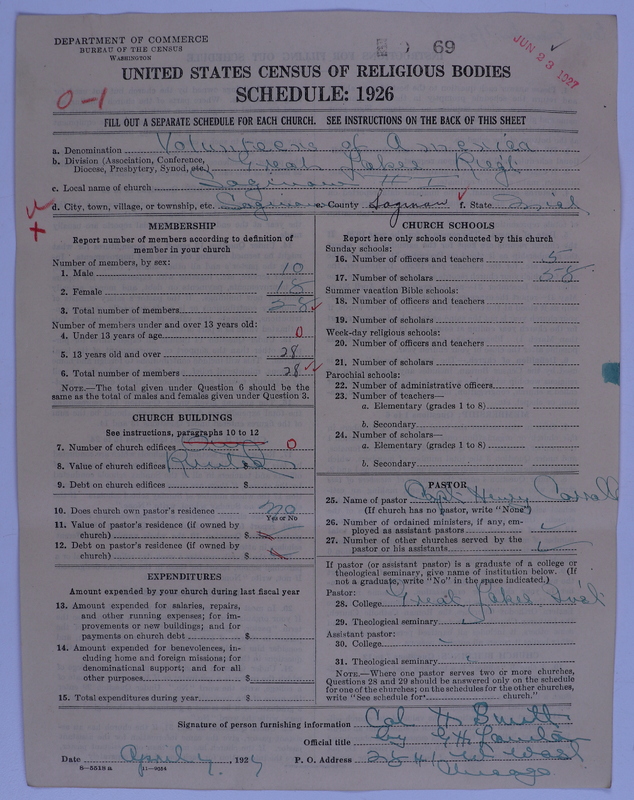 DEPARTMENT OF COMMERCE
BUREAU OF THE CENSUS
WASHINGTON
69
JUN 23 1927
UNITED STATES CENSUS OF RELIGIOUS BODIES
SCHEDULE: 1926
0-1
FILL OUT A SEPARATE SCHEDULE FOR EACH CHURCH. SEE INSTRUCTIONS ON THE BACK OF THIS SHEET
a. Denomination Volunteers of America
b. Division (Association, Conference, Diocese, Presbytery, Synod, etc.) Great Lakes Regt
c. Local name of church Saginaw
d. City, town, village, or township, etc. Saginaw County Saginaw f. State
MEMBERSHIP
Report number of members according to definition of member in your church
Number of members, by sex:
1. Male 10
2. Female 18
3. Total number of members 28
Number of members under and over 13 years old:
4. Under 13 years of age 0
5. 13 years old and over 28
6. Total number of members 28
NOTE.—The total given under Question 6 should be the same as the total of males and females given under Question 3.
CHURCH BUILDINGS
See instructions, paragraphs 10 to 12
7. Number of church edifices 0
8. Value of church edifices $ Rented
9. Debt on church edifices $
10. Does church own pastor's residence no
Yes or No
11. Value of pastor's residence (if owned by church) $
12. Debt on pastor's residence (if owned by church) $
EXPENDITURES
Amount expended by your church during last fiscal year
13. Amount expended for salaries, repairs, and other running expenses; for improvements or new buildings; and for payments on church debt $
14. Amount expended for benevolences, including home and foreign missions; for denominational support; and for all other purposes $
15. Total expenditures during year $
CHURCH SCHOOLS
Report here only schools conducted by this church
Sunday schools:
16. Number of officers and teachers 5
17. Number of scholars 58
Summer vacation Bible schools:
18. Number of officers and teachers
19. Number of scholars
Week-day religious schools:
20. Number of officers and teachers
21. Number of scholars
Parochial schools:
22. Number of administrative officers
23. Number of teachers—
a. Elementary (grades 1 to 8)
b. Secondary
24. Number of scholars—
a. Elementary (grades 1 to 8)
b. Secondary
PASTOR
25. Name of pastor Capt. Henry Carroll
(If church has no pastor, write "None")
26. Number of ordained ministers, if any, employed as assistant pastors
27. Number of other churches served by the pastor or his assistants
If pastor (or assistant pastor) is a graduate of a college or theological seminary, give name of institution below. (If not a graduate, write "No" in the space indicated.)
Pastor:
28. College Great Lakes
29. Theological seminary
Assistant pastor:
30. College
31. Theological seminary
NOTE.—Where one pastor serves two or more churches, Questions 28 and 29 should be answered only on the schedule for one of the churches; on the schedules for the other churches, write "See schedule for church."
Signature of person furnishing information Col H Smith
Official title by
Date April 1927 P. O. Address
Chicago
8-5518 a 11-9034